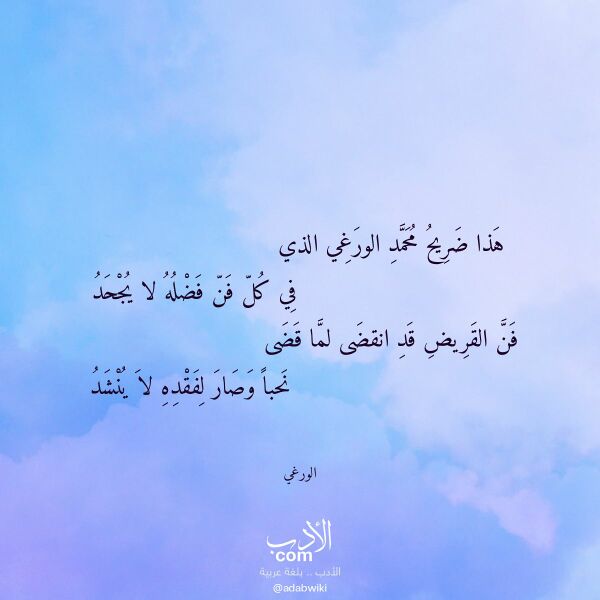 هَذا ضَرِيحُ مُحَمَّدِ الورَغِي الذي
فِي كُلّ فَنّ فَضْلُهُ لا يُجْحَدُ
فَنَّ القَرِيضِ قَدِ انقضَى لمَّا قَضَى
نَحباً وَصَارَ لِفَقْدِهِ لاَ يُنْشَدُ
الورغي
الأدب
com
الأدب .. بلغة عربية
@adabwiki